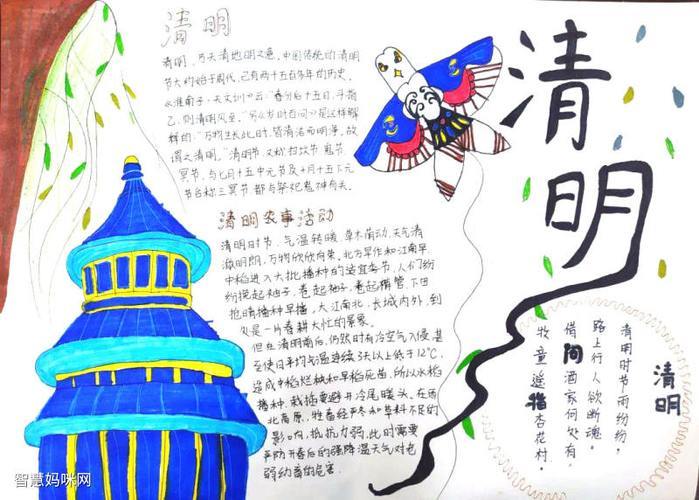 清明
清明,乃天清地明之意,中国传统的清明
节大约始于周代,已有两千五百多年的历史。
《淮南子·天文训》云:"春分后十五日,斗指
乙,则清明风至。"《岁时百问》是这样解
释的:"万物生长此时,皆清洁而明净,故
谓之清明。"清明节又称扫坟节、鬼节、
冥节,与七月十五中元节及十月十五下元
节合称三冥节,都与祭祀鬼神有关。
清明农事活动
清明时节,气温转暖,草木萌动,天气清
澈明朗,万物欣欣向荣,北方旱作和江南早
中稻进入大批播种的适宜季节,人们纷
纷挽起袖子,卷起袖子,卷起裤管,下田
抢晴播种早播,大江南北,长城内外,到
处是一片春耕大忙的景象。
但在清明前后,仍然时有冷空气入侵,甚
至使日平均气温连续3天以上低于12℃,
造成中稻烂秧和早稻死苗,所以水稻
播种、栽插要避开冷尾暖头。在西
北高原,牲畜经严冬和草料不足的
影响,抵抗力弱,此时需要
严防开春后的强降温天气对老
弱幼畜的危害。
清明
清明
清明时节雨纷纷,
路上行人欲断魂。
借问酒家何处有,
牧童遥指杏花村。
智慧妈咪网